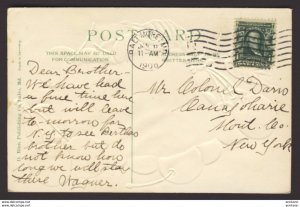 POSTCARD
THIS SPACE MAY BE USED
FOR COMMUNICATION
BALTIMORE, MD.
11-AM
1909
Dear Brother
We have had
a fine time here
but will leave
to-morrow for
N.Y. to see Berthas
brother but do
not know how
long we will stay
there Wagner.
Mr Colonel Davis
Canajoharie
Mont. Co.
New York